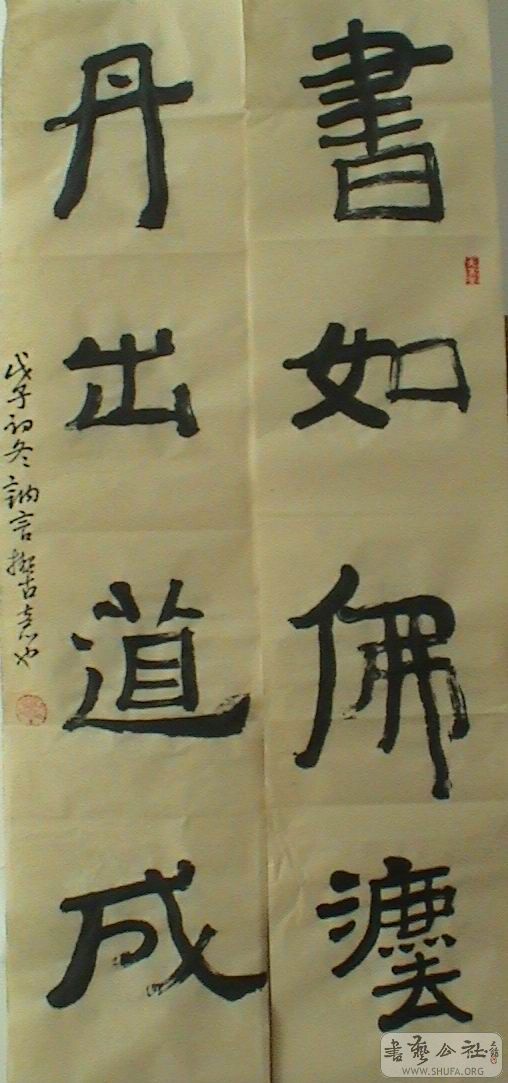 書如佛灋
丹出道成
戊子初冬訥言擬古意也
書藝公社
WWW.SHUFA.ORG